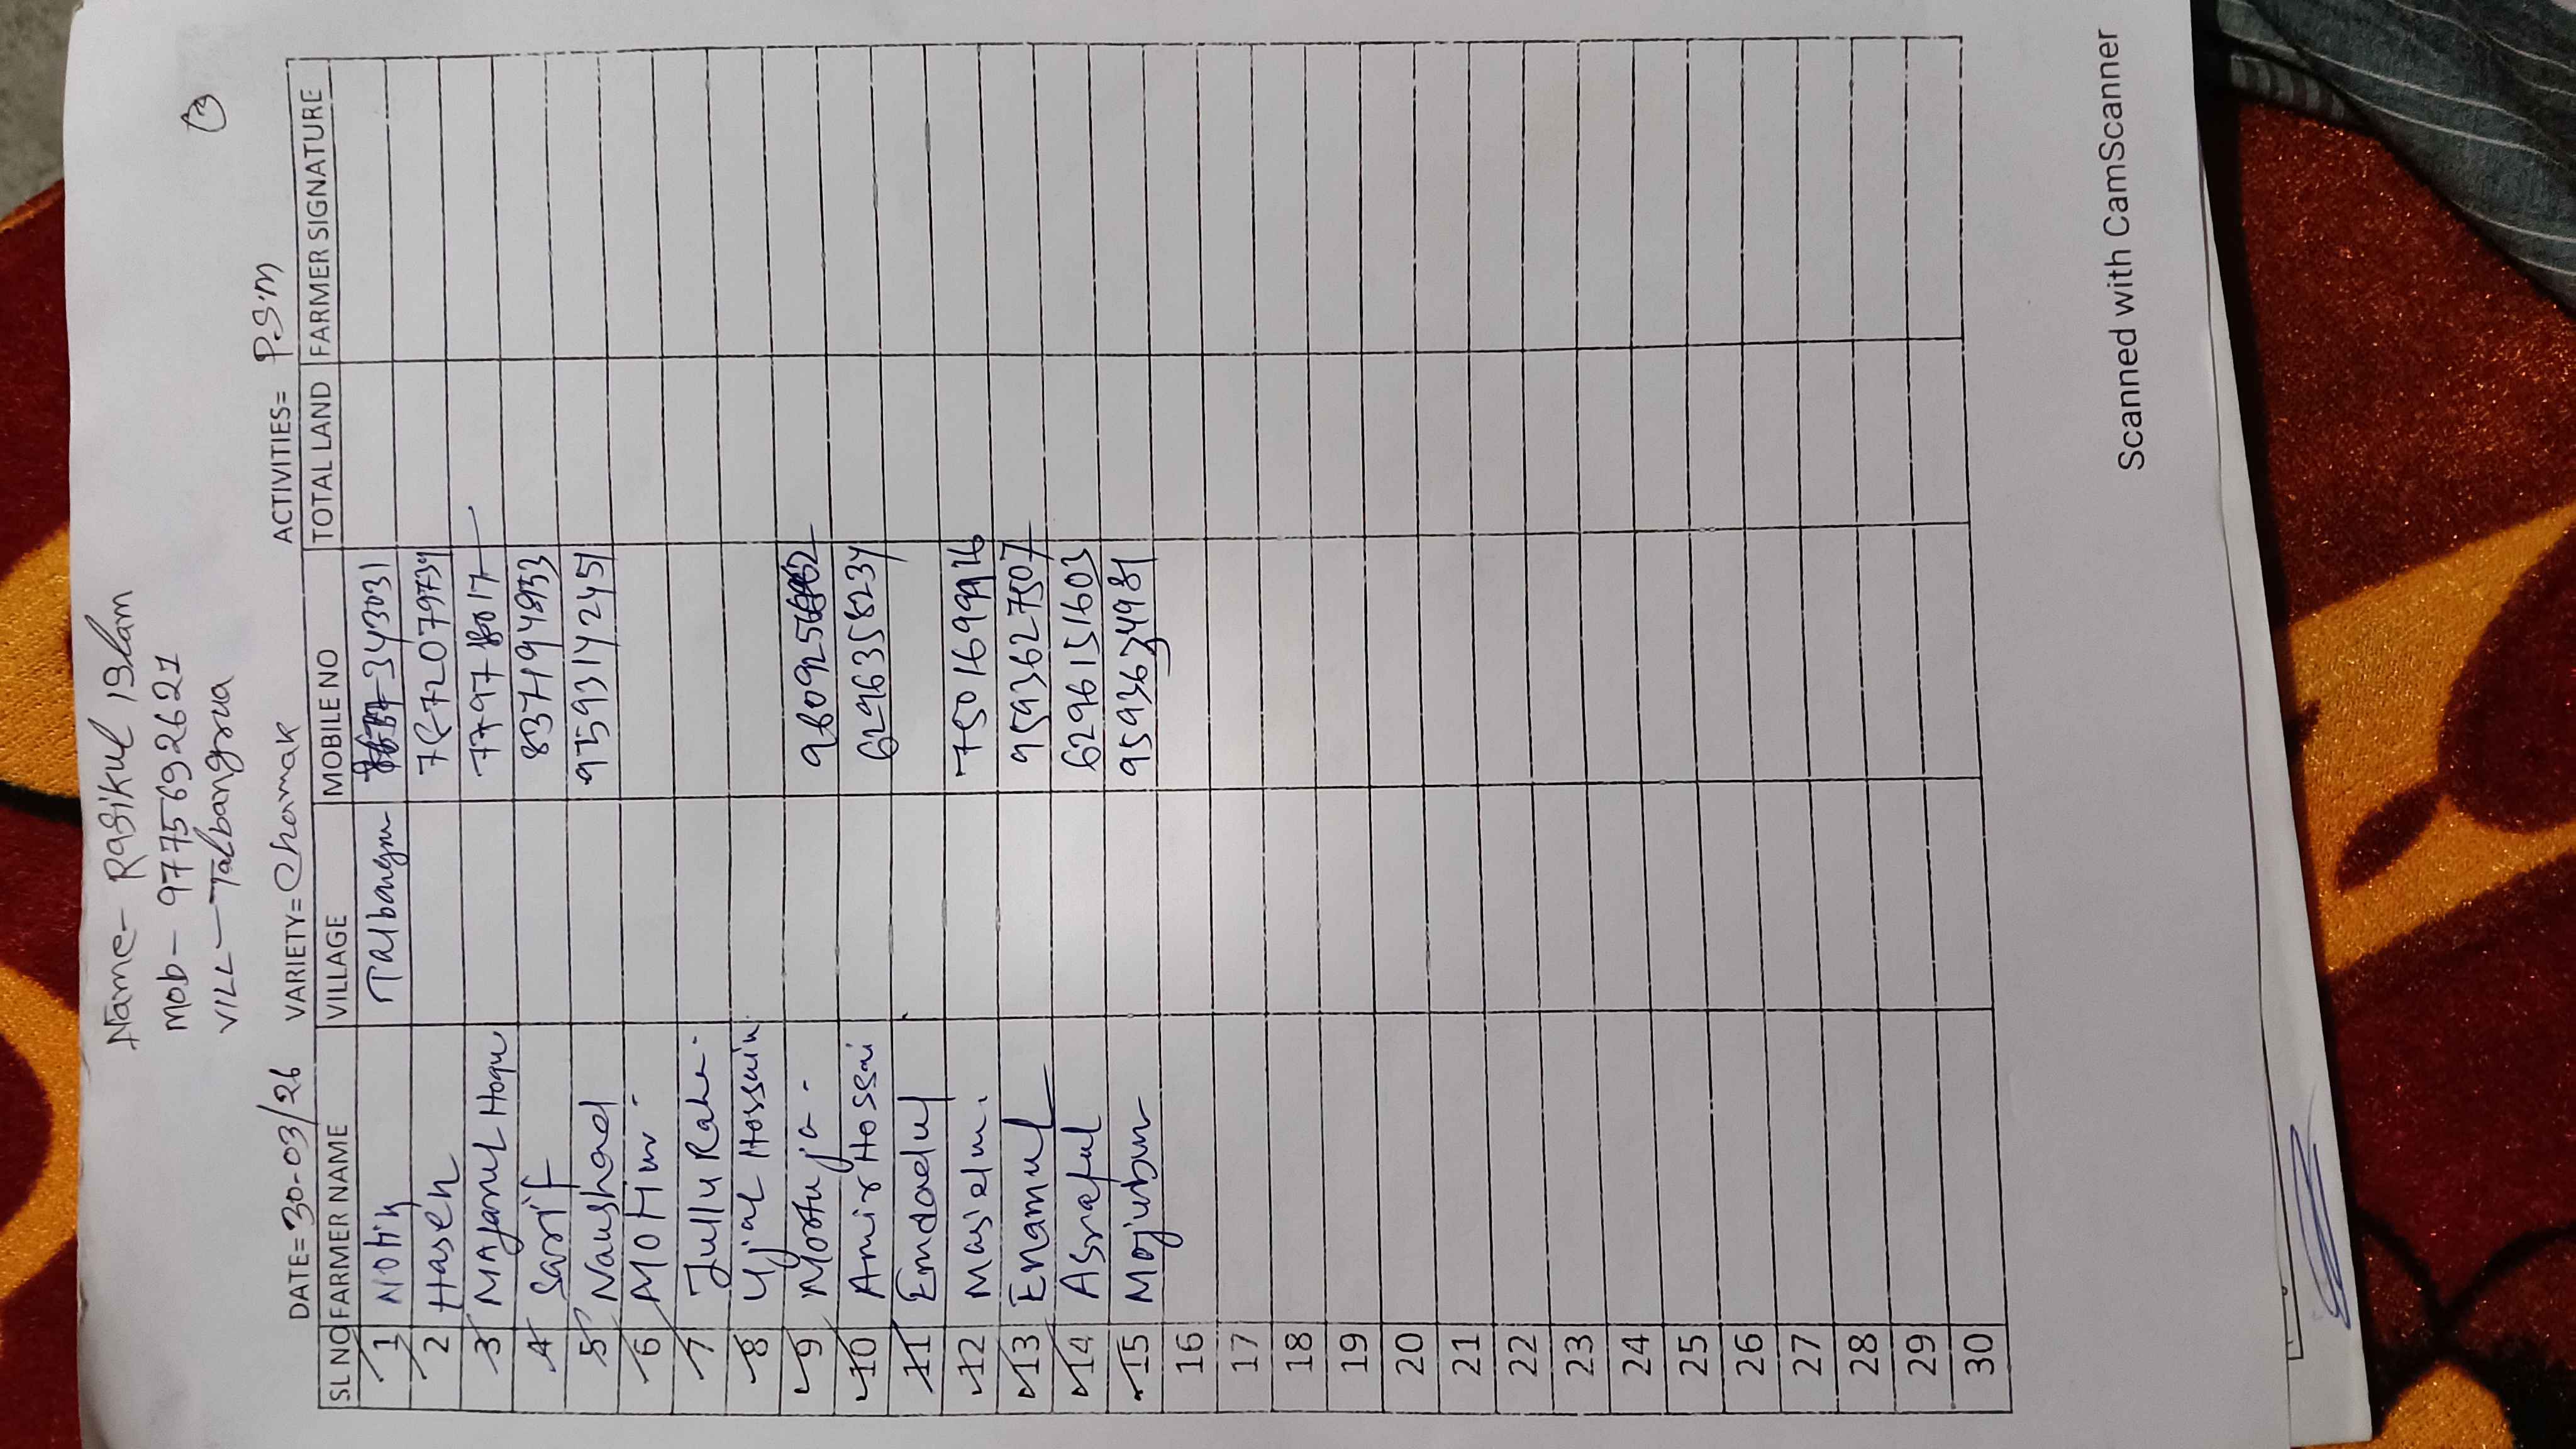 Name- Rasikul Islam
Mob- 9775692621
VILL- Talbangrua
3
DATE= 30-03/26 VARIETY= Chamak ACTIVITIES= P.S.M
SL NO FARMER NAME VILLAGE MOBILE NO TOTAL LAND FARMER SIGNATURE
1 Talbangru 343031
2 Hasen
3 Majarul Hoque 7797 8017
4 Sarif 8371948933
5 Naushad 9593142451
6
7 Jullu
8 Ujal Hossain
9 Mortuja
10 Amir Hossai 6296358234
11 Emdadul
12 7501699916
13 Enamul 9593627507
14 Asraful 6296151603
15 Mojubur
16
17
18
19
20
21
22
23
24
25
26
27
28
29
30
Scanned with CamScanner